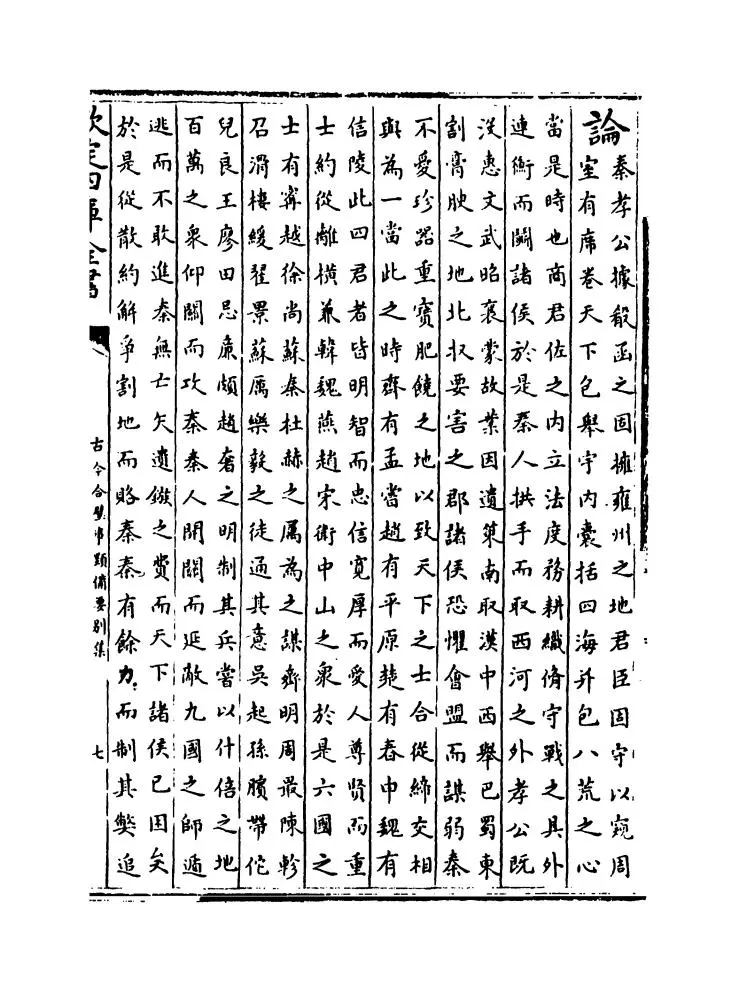 論
秦孝公據殽函之固擁雍州之地君臣固守以窺周
室有席卷天下包舉宇内囊括四海并包八荒之心
當是時也商君佐之内立法度務耕織脩守戰之具外
連衡而鬭諸侯於是秦人拱手而取西河之外孝公既
没惠文武昭襄蒙故業因遺策南取漢中西舉巴蜀東
割膏腴之地北収要害之郡諸侯恐懼會盟而謀弱秦
不愛珍器重寳肥饒之地以致天下之士合從締交相
與為一當此之時齊有孟嘗趙有平原楚有春申魏有
信陵此四君者皆明智而忠信寛厚而愛人尊贤而重
士約從離横兼韓魏燕趙宋衛中山之衆於是六國之
士有甯越徐尚蘇秦杜赫之属為之謀齊明周最陳軫
召滑樓緩翟景蘇厲樂毅之徒通其意吳起孫臏帶佗
兒良王廖田忌廉頗趙奢之明制其兵嘗以什倍之地
百萬之衆仰關而攻秦秦人開關而延敵九國之師遁
逃而不敢進秦無亡矢遺鏃之費而天下諸侯已困矣
於是從散約解爭割地而賂秦秦有餘力而制其弊追
欽定四庫全書
古今合璧事類備要别集
七